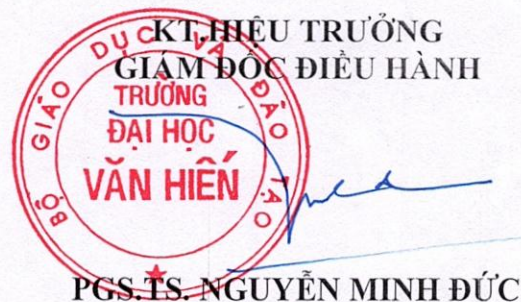 KT.HIỆU TRƯỞNG
GIÁM ĐỐC ĐIỀU HÀNH
BỘ GIÁO DỤC VÀ ĐÀO TẠO
TRƯỜNG
ĐẠI HỌC
VĂN HIẾN
PGS.TS. NGUYỄN MINH ĐỨC